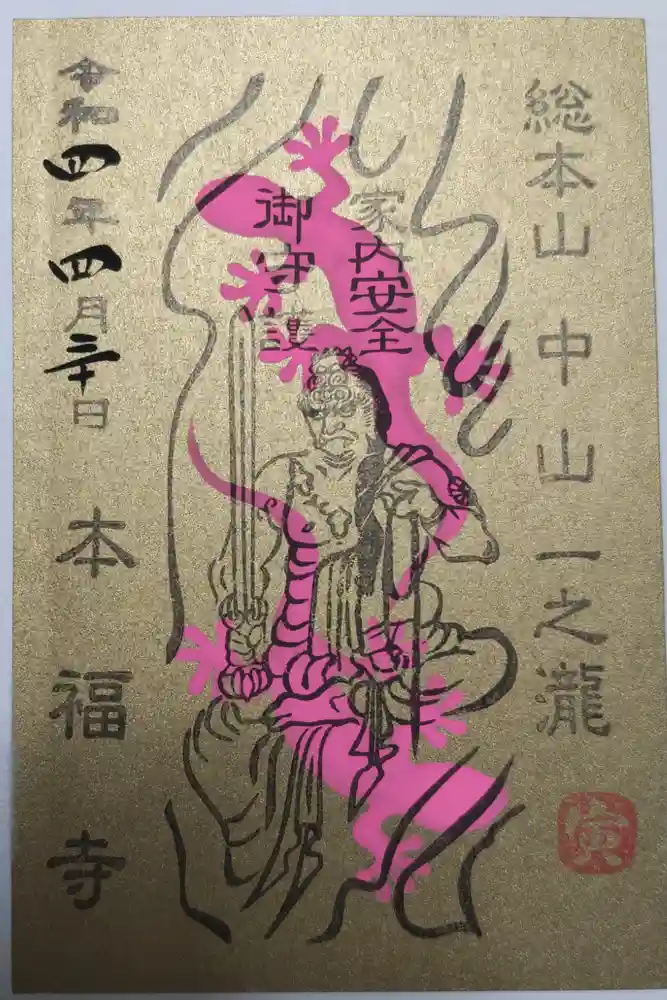 総本山 中山一之瀧
家内安全
御守護
令和四年四月三十日 本福寺
寅